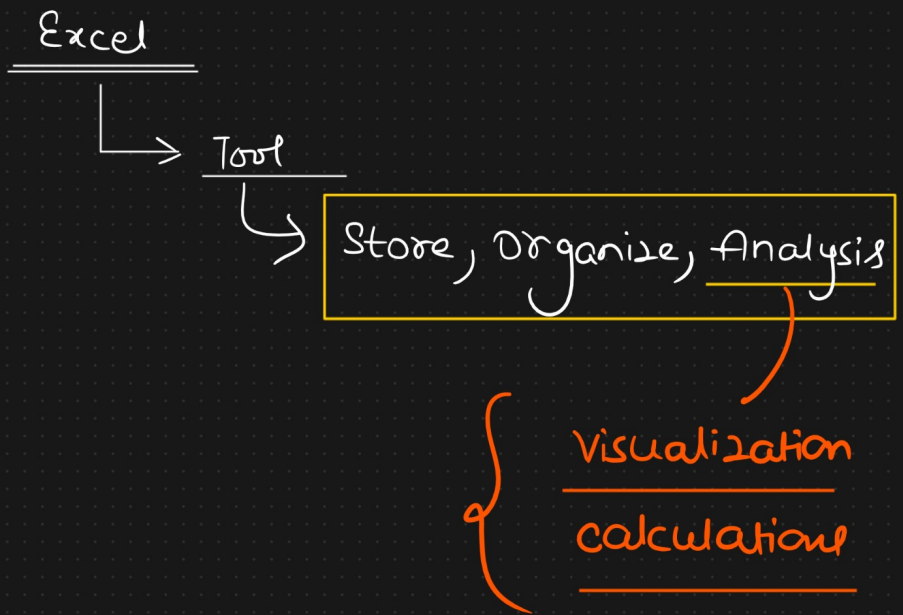 Excel
Tool
Store, Organize, Analysis
Visualization
calculations